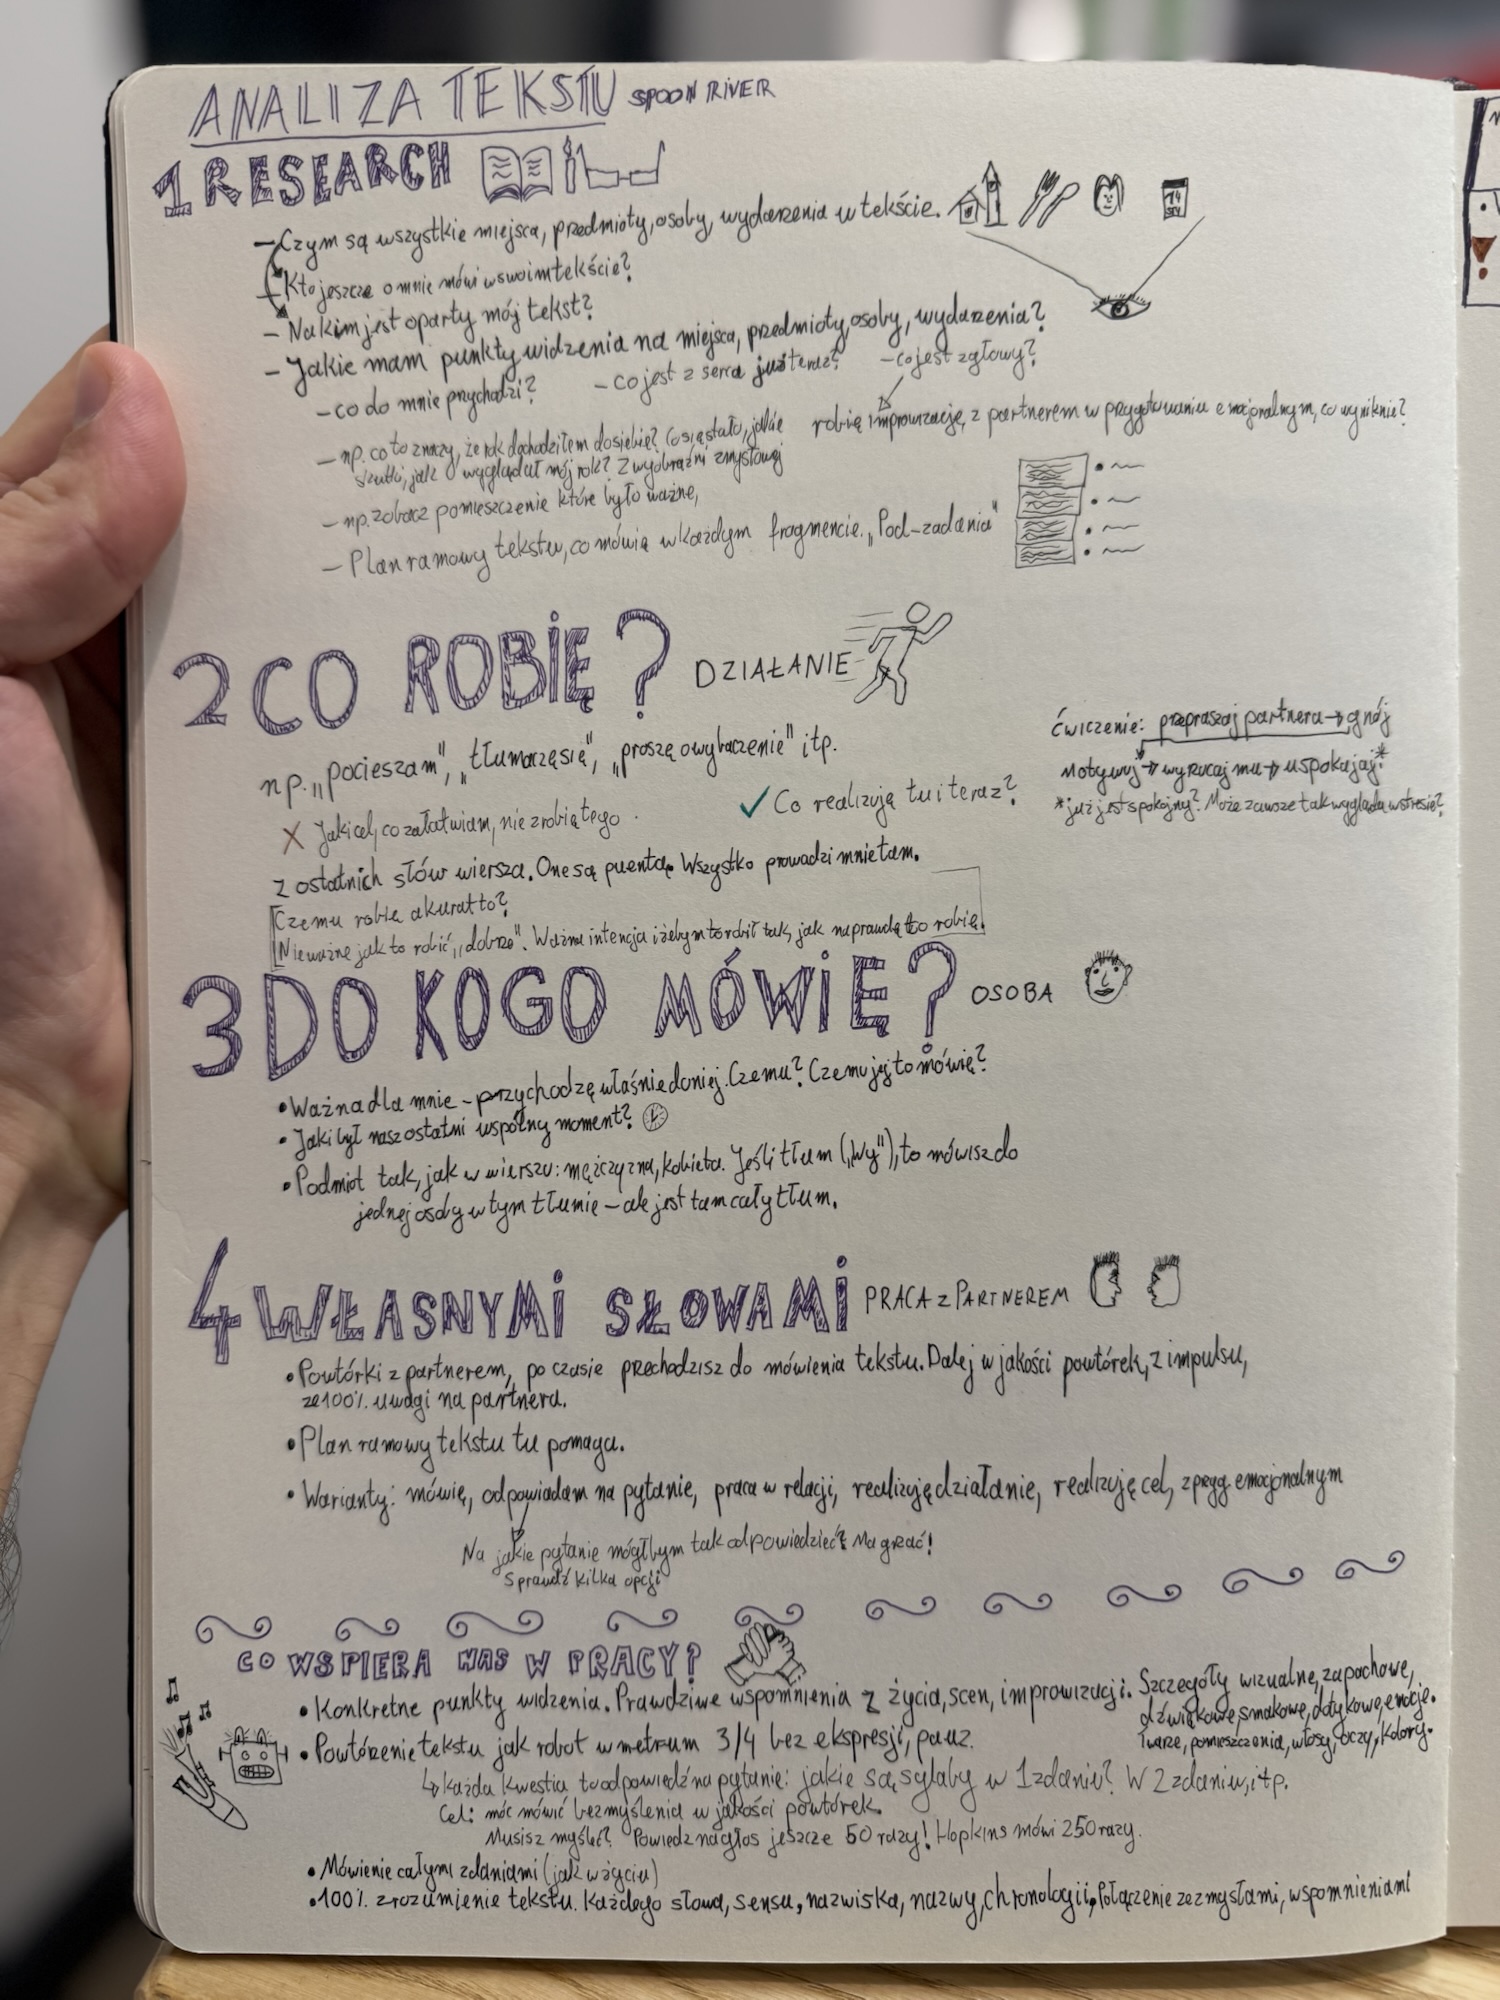 ANALIZA TEKSTU SPOON RIVER
1 RESEARCH
- Czym są wszystkie miejsca, przedmioty, osoby, wydarzenia w tekście.
14
- Kto jeszcze o mnie mówi w swoim tekście?
- Na kim jest oparty mój tekst?
- Jakie mam punkty widzenia na miejsca, przedmioty, osoby, wydarzenia?
- co do mnie przychodzi? - co jest z serca już teraz? - co jest z głowy?
robię improwizację, z partnerem w przygotowaniu emocjonalnym, co wyniknie?
- np. co to znaczy, że rok dochodziłem do siebie? Co się stało, jakie
skutki, jak wyglądał mój rok? Z wyobraźni zmysłowej
- np. zobacz pomieszczenie które było ważne,
- Plan ramowy tekstu, co mówię w każdym fragmencie. „Pod-zadania"
2 CO ROBIĘ? DZIAŁANIE
np. „pocieszam", „tłumaczę się", „proszę o wybaczenie" itp.
ćwiczenie: przepraszaj partnera → gnój
Motywuj → wyrzucaj mu → uspokajaj*
*już jest spokojny? Może zawsze tak wygląda w stresie?
X Jaki cel, co załatwiam, nie zrobię tego.
✓ Co realizują tu i teraz?
z ostatnich słów wiersza. One są puentą. Wszystko prowadzi mnie tam.
Czemu robię akurat to?
Nieważne jak to robić, „dobrze". Ważna intencja i żebym to robił tak, jak naprawdę to robię.
3 DO KOGO MÓWIĘ? OSOBA
• Ważna dla mnie - przychodzę właśnie do niej. Czemu? Czemu jej to mówię?
• Jaki był nasz ostatni wspólny moment?
• Podmiot tak, jak w wierszu: mężczyzna, kobieta. Jeśli tłum („Wy"), to mówisz do
jednej osoby w tym tłumie - ale jest tam cały tłum.
4 WŁASNYMI SŁOWAMI PRACA Z PARTNEREM
• Powtórki z partnerem, po czasie przechodzisz do mówienia tekstu. Dalej w jakości powtórek, z impulsu,
ze 100% uwagi na partnera.
• Plan ramowy tekstu tu pomaga.
• Warianty: mówię, odpowiadam na pytanie, praca w relacji, realizuję działanie, realizuję cel, z przyg emocjonalnym
Na jakie pytanie mógłbym tak odpowiedzieć? Ma grać!
Sprawdź kilka opcji
CO WSPIERA NAS W PRACY?
• Konkretne punkty widzenia. Prawdziwe wspomnienia z życia, scen, improwizacji. Szczegóły wizualne, zapachowe,
dźwiękowe, smakowe, dotykowe, emocje.
Twarze, pomieszczenia, włosy, oczy, kolory.
• Powtórzenie tekstu jak robot w metrum 3/4 bez ekspresji, pauz.
↳ każda kwestia to odpowiedź na pytanie: jakie są sylaby w 1 zdaniu? W 2 zdaniu, itp.
Cel: móc mówić bez myślenia w jakości powtórek.
Musisz myśleć? Powiedz na głos jeszcze 50 razy! Hopkins mówi 250 razy.
• Mówienie całymi zdaniami (jak w życiu)
• 100% zrozumienie tekstu. Każdego słowa, sensu, nazwiska, nazwy, chronologii, Połączenie ze zmysłami, wspomnieniami